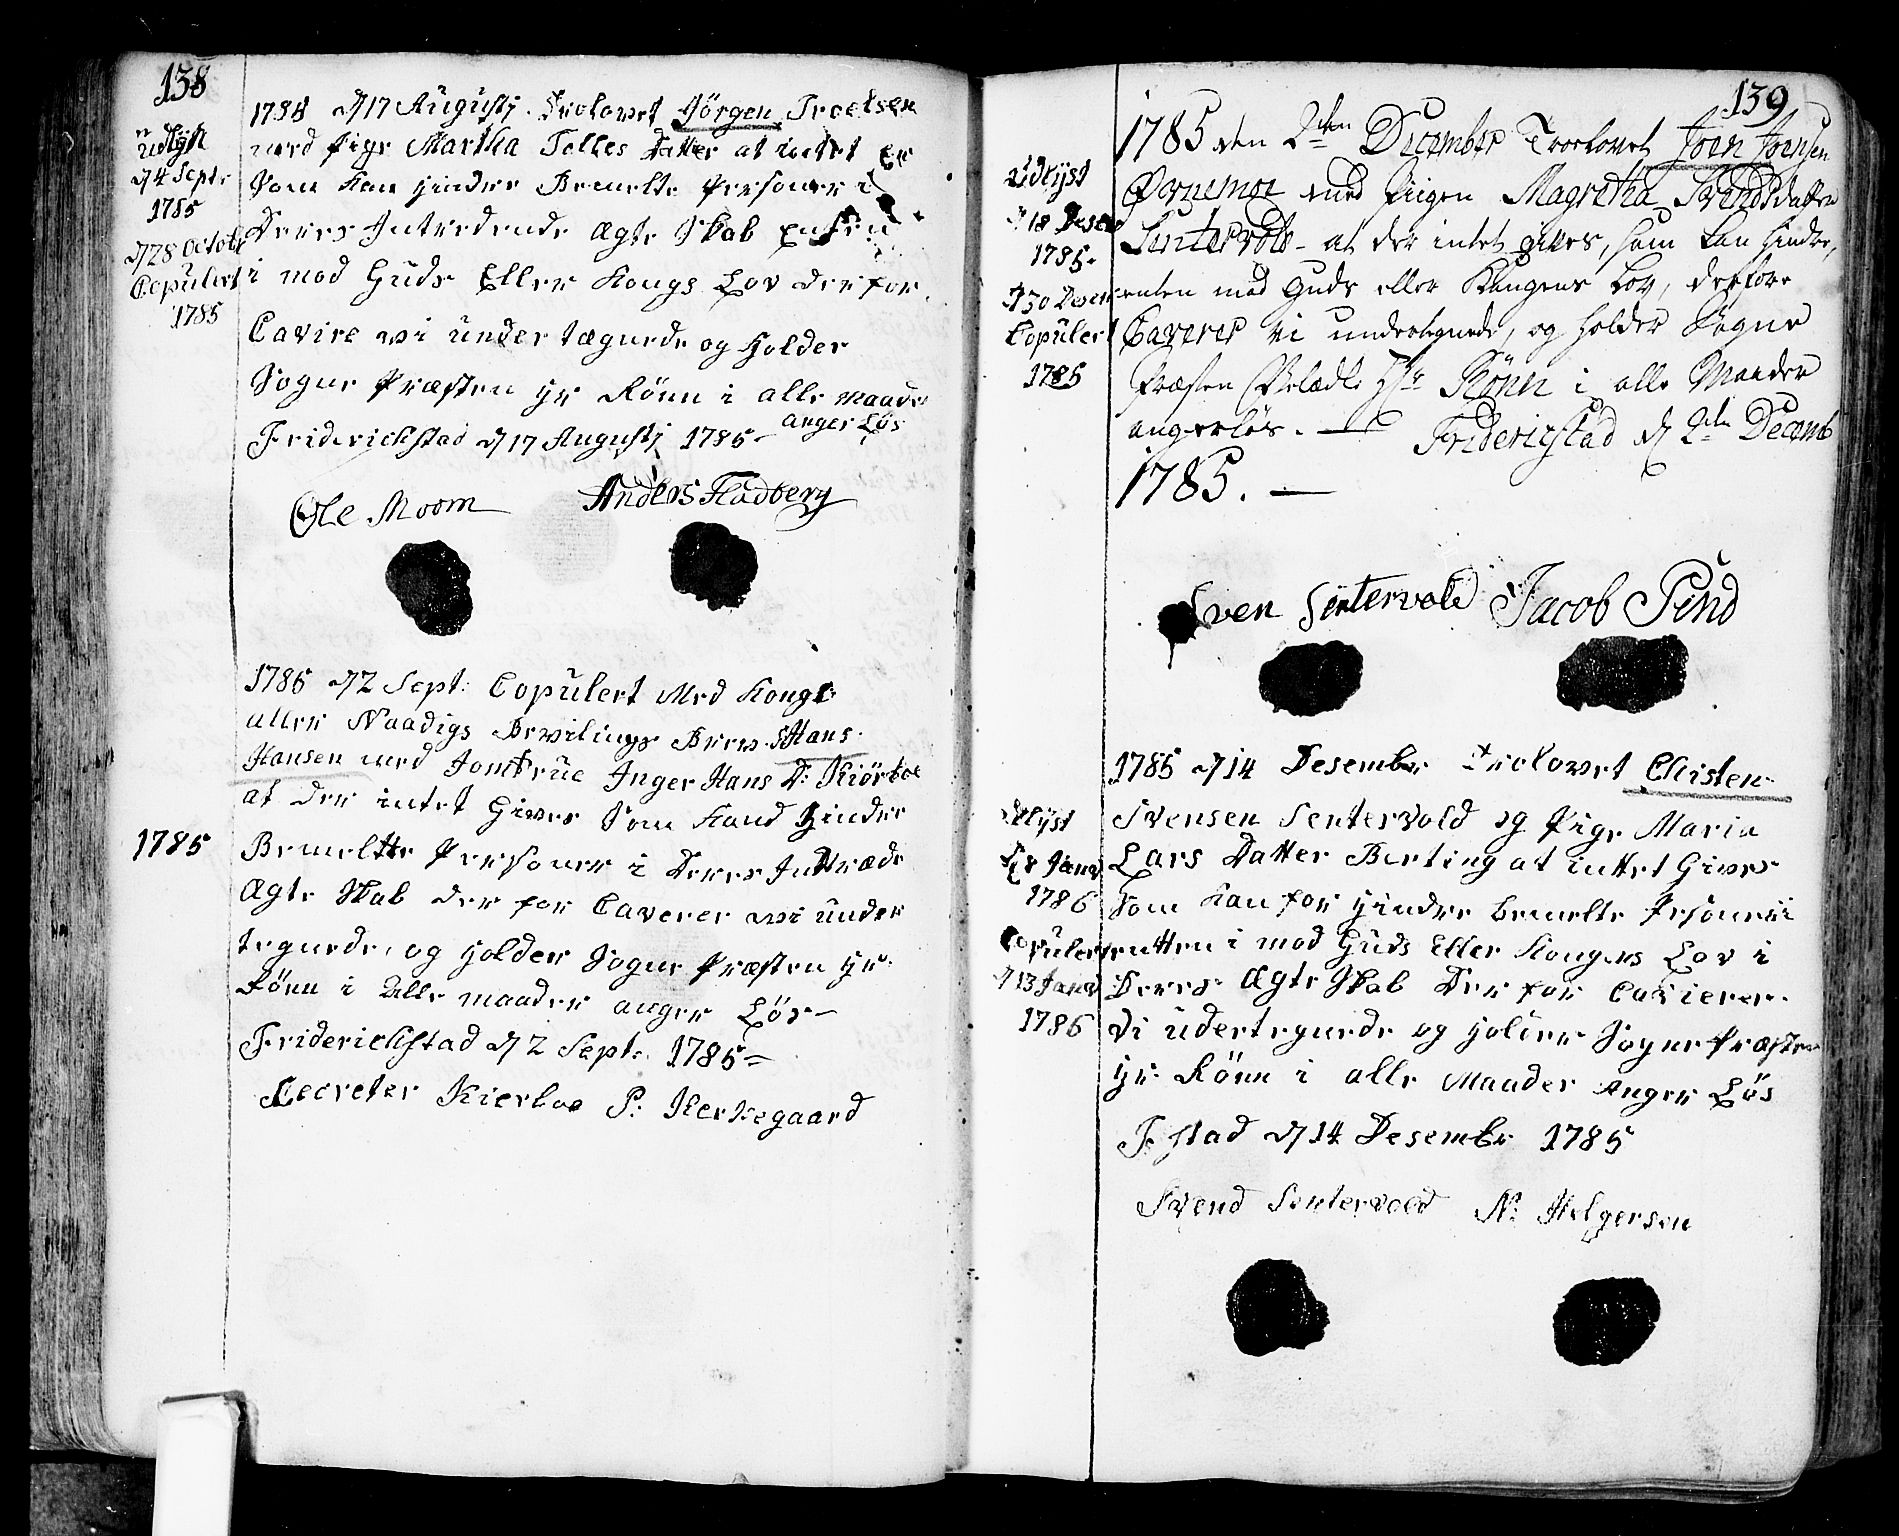 138
udlyst
d 4 Sept:
1785
d 28 Octobr
Copulert
1785
1785 d 17 Augustj. Trolovet Jörgen Troelsen
med Pige Martha Tolles Datter at intet er
Som kan hindre Bemelte Personer i
Deres Intredende Ægte Skab enten
i mod Guds Eller Kongs Lov der for
Cavire wi under tægnede og Holder
Sogne Præsten Hr Rönn i alle maade
anger Lös
Friderichstad d 17 Augustj 1785
Ole Moom Anders Fladberg
1785 d 2 Sept: Copulert Med Kongl:
aller Naadigs Bevilings Brev S Hans
Hansen med Jomfrue Inger Hans D: Kiörboe
at Der intet Gives Som Kand Hinder
1785
Bemeltte Personer i Deres Inttræde
Ægte Skab der for Caverer wi under
tegnede, og Holder Sogne Præsten Hr:
Rönn i alle maader anger Lös
Friderichstad d 2 Sept: 1785
Secreter Kierboe P: Kerkegaard
139
Udlyst
d 18 Desem
1785
d 30 Desem
Copulert
1785
1785 den 2den December Troelovet Joen Joensen
Ørnemoe med Piigen Magretha Svendsdatter
Sentervold - at der intet gives, som kan hindre,
enten mod Guds eller Kongens Lov, derfore
Caverer vi undertegnede, og holder Sogne
Præsten Velædle Hr Rönn i alle Maader
angerløs. — Fridericstad d 2den Decemb
1785. —
Sven Sentervold Jacob Pind
1785 d 14 Desembr Trolovet Chisten
Udlyst
d 8 Janv
1786
Copulert
d 13 Janv
1786
Svensen Sentervold og Pige Maria
Lars Datter Berting at inttet Gives
Som kan for hindre bemelte Personer i
entten i mod Guds Eller Kongens Lov i
Deres Ægte Skab Der for Cavierer
Vi udertegnede og holder Sogne Præsten
Hr Rönn i alle Maader Anger Lös
F: stad d 14 Desembr 1785
Svend Sentervold N: Helgersen